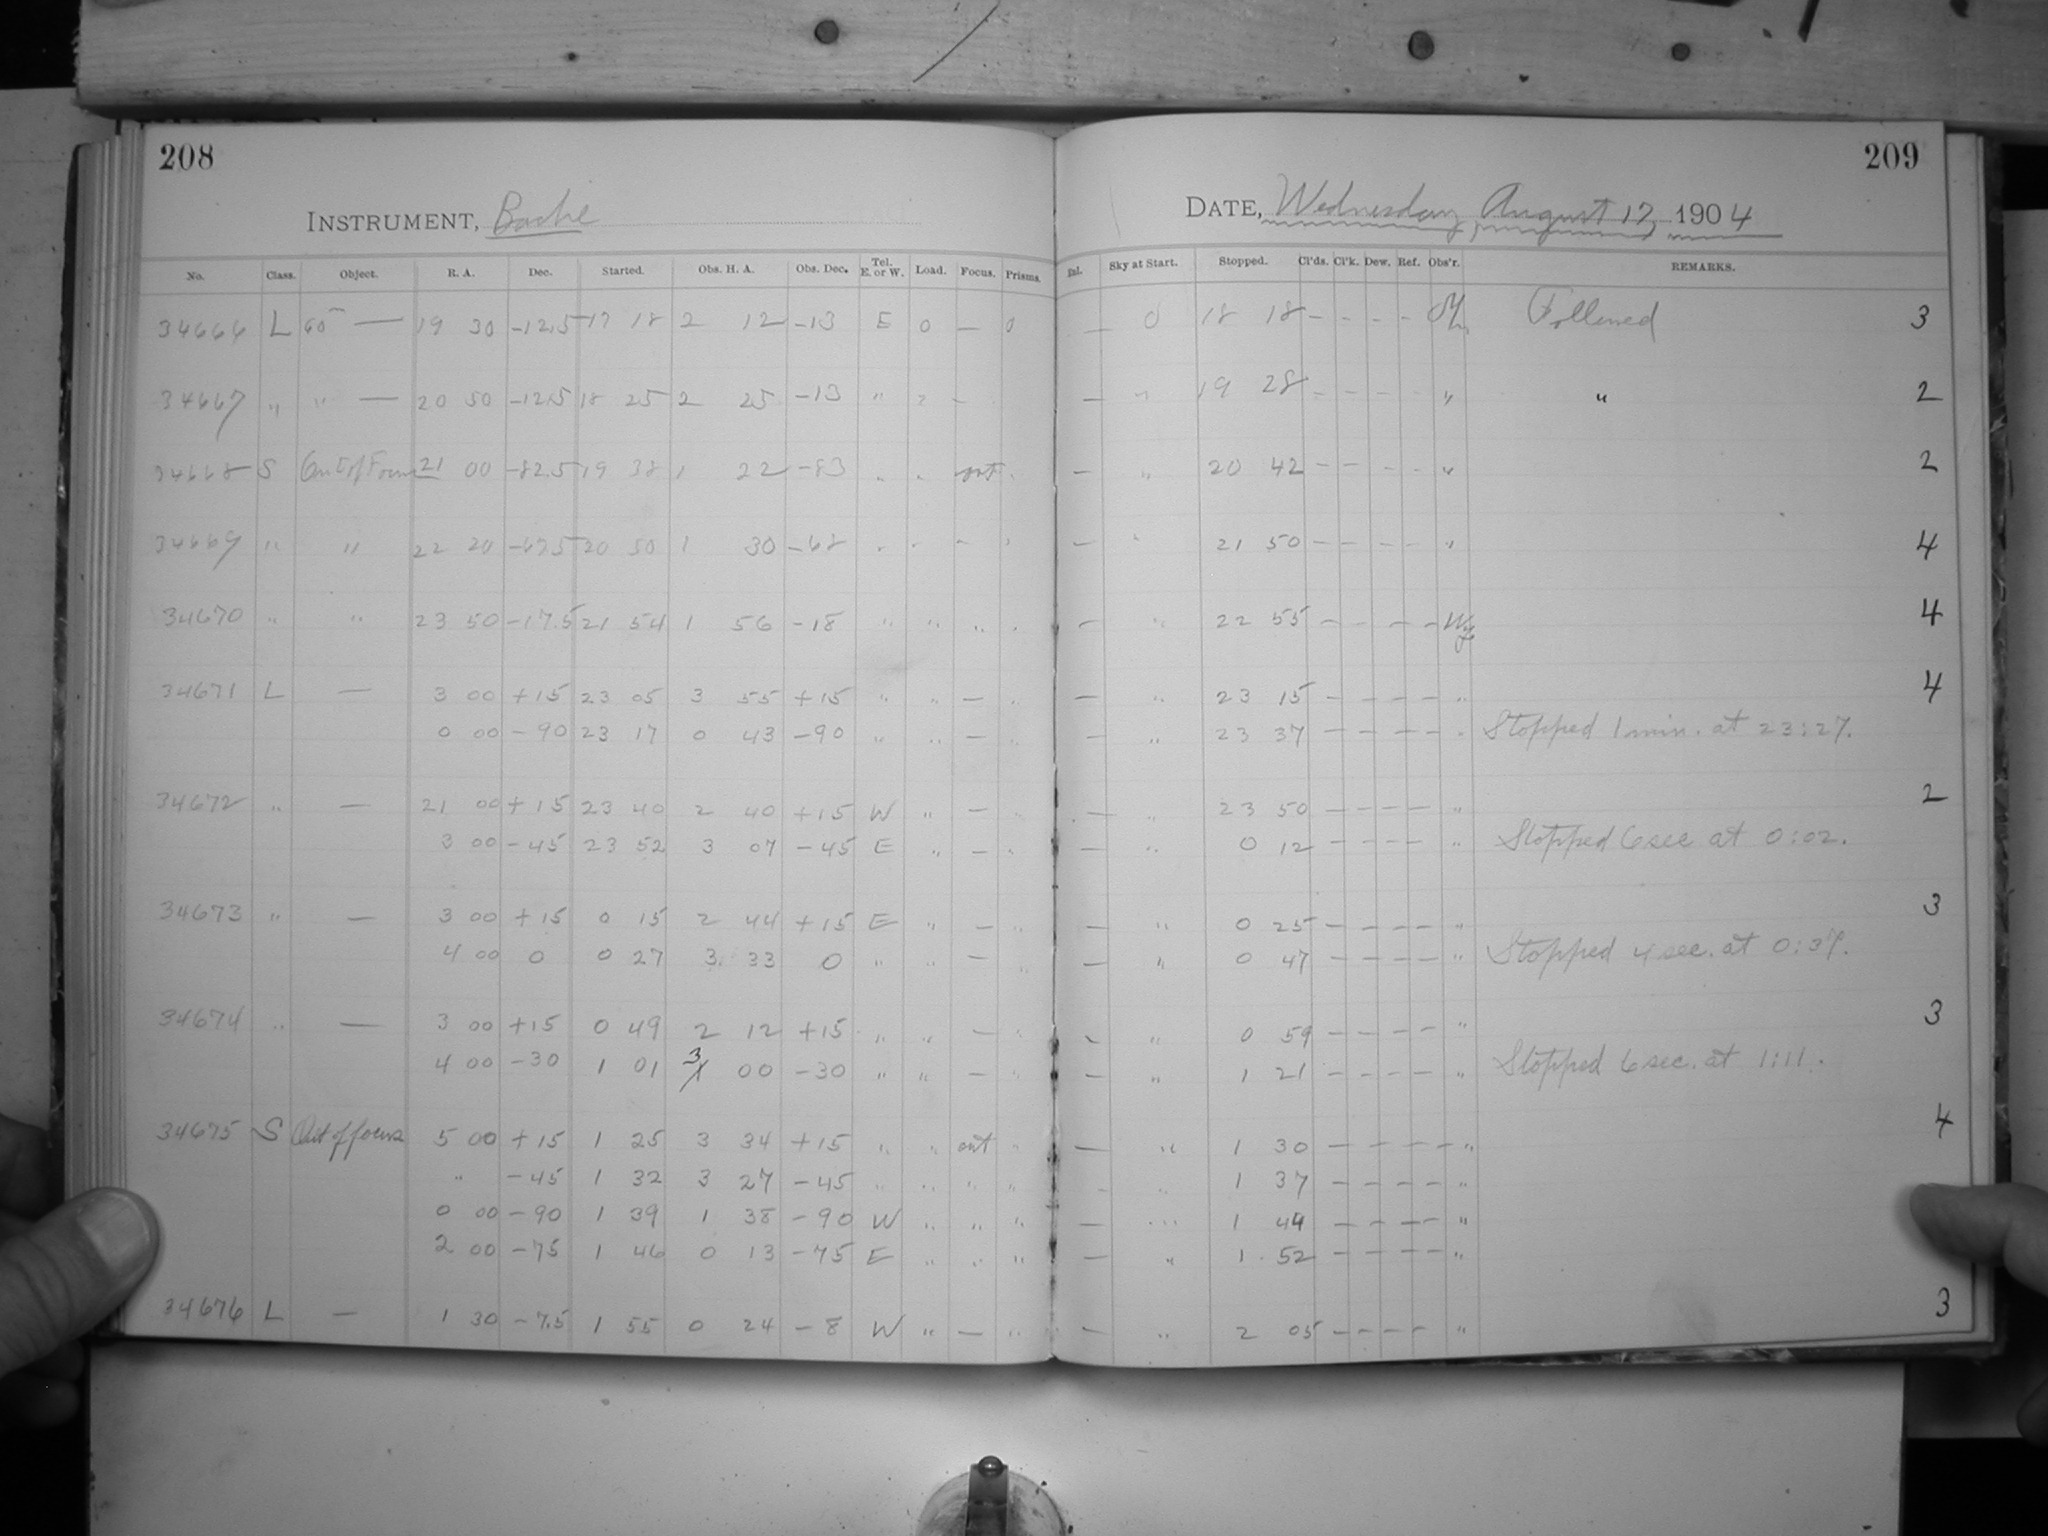 208
INSTRUMENT, Bache
No. Class. Object. R. A. Dec. Started. Obs. H. A. Obs. Dec. Tel. E. or W. Load. Focus. Prisms.
34666 L 60m — 19 30 -12.5 17 18 2 12 -13 E 0 — 0
34667 " " — 20 50 -12.5 18 25 2 25 -13 " " -
34668 S Out of Focus 21 00 -82.5 19 38 1 22 -83 " " out "
34669 " " 22 20 -67.5 20 50 1 30 -68 " " " "
34670 " " 23 50 -17.5 21 54 1 56 -18 " " " "
34671 L — 3 00 +15 23 05 3 55 +15 " " — "
0 00 -90 23 17 0 43 -90 " " — "
34672 " — 21 00 +15 23 40 2 40 +15 W " — "
3 00 -45 23 52 3 07 -45 E " — "
34673 " — 3 00 +15 0 15 2 44 +15 E " — "
4 00 0 0 27 3 33 0 " " — "
34674 " — 3 00 +15 0 49 2 12 +15 " " — "
4 00 -30 1 01 3 00 -30 " " — "
34675 S Out of focus 5 00 +15 1 25 3 34 +15 " " out "
" -45 1 32 3 27 -45 " " " "
0 00 -90 1 39 1 38 -90 W " " "
2 00 -75 1 46 0 13 -75 E " " "
34676 L — 1 30 -7.5 1 55 0 24 -8 W " — "
209
DATE, Wednesday August 17, 1904
Sky at Start. Stopped. Cl'ds. Cl'k. Dew. Ref. Obs'r. REMARKS.
— 0 18 18 - - - - Followed 3
— " 19 28 - - - - " " 2
— " 20 42 - - - - " 2
— " 21 50 - - - - " 4
— " 22 55 - - - - 4
— " 23 15 - - - - " 4
— " 23 37 - - - - " Stopped 1 min. at 23:27.
— " 23 50 - - - - " 2
— " 0 12 - - - - " Stopped 6 sec at 0:02.
— " 0 25 - - - - " 3
— " 0 47 - - - - " Stopped 4 sec. at 0:37.
— " 0 59 - - - - " 3
— " 1 21 - - - - " Stopped 6 sec. at 1:11.
— " 1 30 - - - - " 4
— " 1 37 - - - - "
— " 1 44 - - - - "
— " 1 52 - - - - "
— " 2 05 - - - - " 3